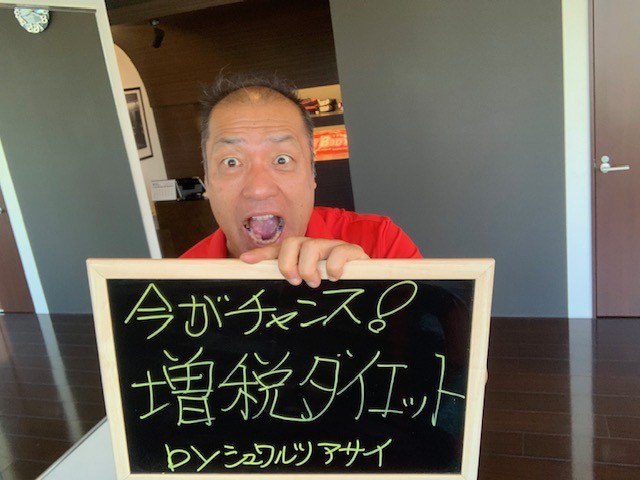 今がチャンス!
増税ダイエット
byシュワルツアサイ